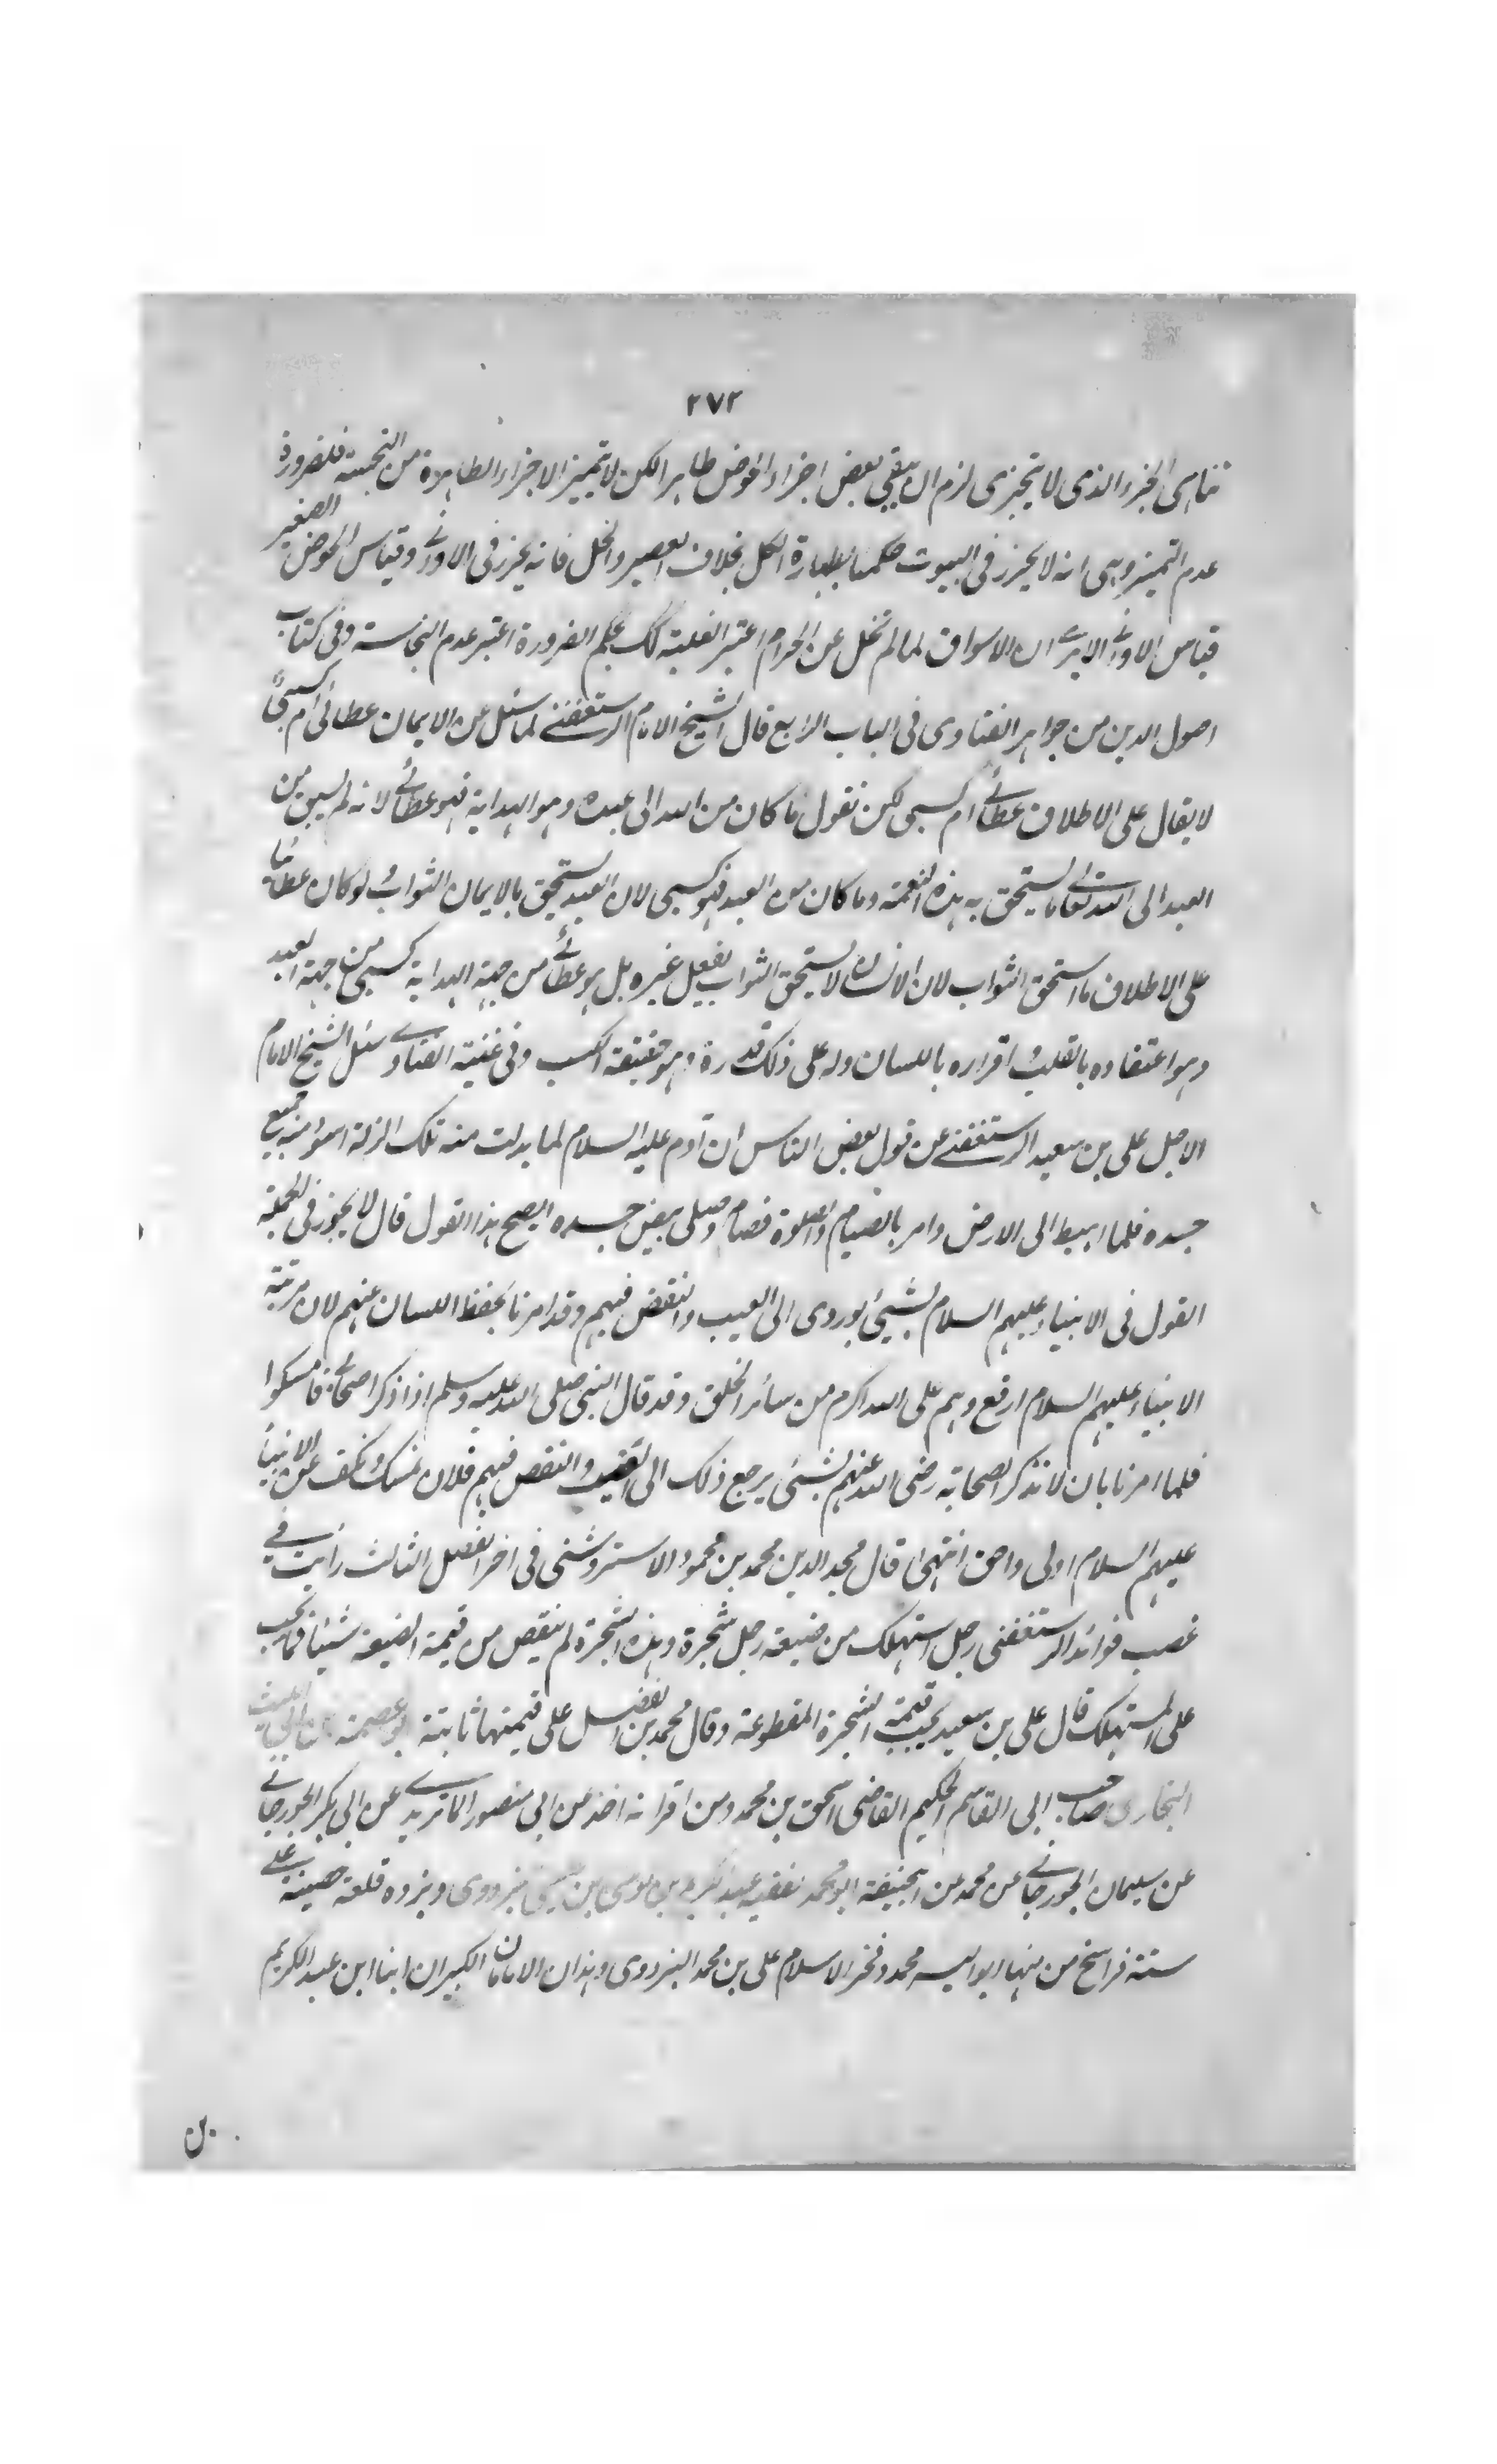 ٢٧٢
تناهى الجزء الذى لا يتجزى لزم ان يبقى بعض اجزاء الحوض طاهرا لكن لا تتميز الاجزاء الطاهرة من النجسة فلضرورة
عدم التميز وهى انه لا يحرز فى البيوت حكمنا بطهارة الكل بخلاف العصير والخل فانه يحرز فى الاوانى وقياس الحوض الصغير
قياس الاوانى الا يرى ان الاسواق لما لم تخل عن الحرام اعتبر الغلبة لك بحكم الضرورة اعتبر عدم النجاسة وفى كتاب
اصول الدين من جواهر الفتاوى فى الباب الرابع قال الشيخ الامام الرستغفنى لما سئل عن الايمان عطائى ام كسبى
لا يقال على الاطلاق عطائى ام كسبى لكن نقول ما كان من الله الى عبده وهو الهداية فهو عطائى لانه لم يسبق من
العبد الى الله تعالى ما يستحق به هذه النعمة وما كان من العبد فهو كسبى لان العبد يستحق بالايمان الثواب ولو كان عطائيا
على الاطلاق ما استحق الثواب لان الانسان لا يستحق الثواب بفعل غيره بل هو عطائى من جهة الهداية كسبى من جهة العبد
وهو اعتقاده بالقلب واقراره باللسان وله على ذلك قدرة وهو حقيقة الكسب وفى غنية الفتاوى سئل الشيخ الامام
الاجل على بن سعيد الرستغفنى عن قول بعض الناس ان آدم عليه السلام لما بدلت منه تلك الزلة اسود منه جميع
جسده فلما اهبط الى الارض وامر بالصيام والصلوة فصام وصلى ابيض جسده ايصح هذا القول قال لا يجوز فى الجملة
القول فى الانبياء عليهم السلام بشيئ يوردى الى العيب والنقض فيهم وقد امرنا بحفظ اللسان عنهم لان مرتبة
الانبياء عليهم السلام ارفع وهم على الله اكرم من سائر الخلق وقد قال النبى صلى الله عليه وسلم اذا ذكر اصحابى فامسكوا
فلما امرنا بان لا نذكر الصحابة رضى الله عنهم بشيئ يرجع ذلك الى العيب والنقص فيهم فلان نمسك ونكف عن الانبياء
عليهم السلام اولى واحق انتهى قال مجد الدين محمد بن محمود الاستروشنى فى اخر الفصل الثالث رأيت فى
غصب فوائد الرستغفنى رجل استهلك من ضيعة رجل شجرة وهذه الشجرة لم ينقص من قيمة الضيعة شيئا فما يجب
على المستهلك قال على بن سعيد يجب قيمة الشجرة المقطوعة وقال محمد بن الفضل على قيمتها ثابتة ابو عصمة بن ابى الليث
البخارى صاحب ابى القاسم الحكيم القاضى اسحق بن محمد ومن اقرانه اخذ عن ابى منصور الماتريدى عن ابى بكر الجورجانى
عن سليمان الجورجانى عن محمد عن ابيحنيفة ابو محمد الفقيه عبد الكريم بن موسى بن عيسى بزدوى وبزده قلعة حصينة على
ستة فراسخ من منها ابو اليسر محمد وفخر الاسلام على بن محمد البزدوى وهذان الامامان الكبيران ابنا ابن عبد الكريم
بن